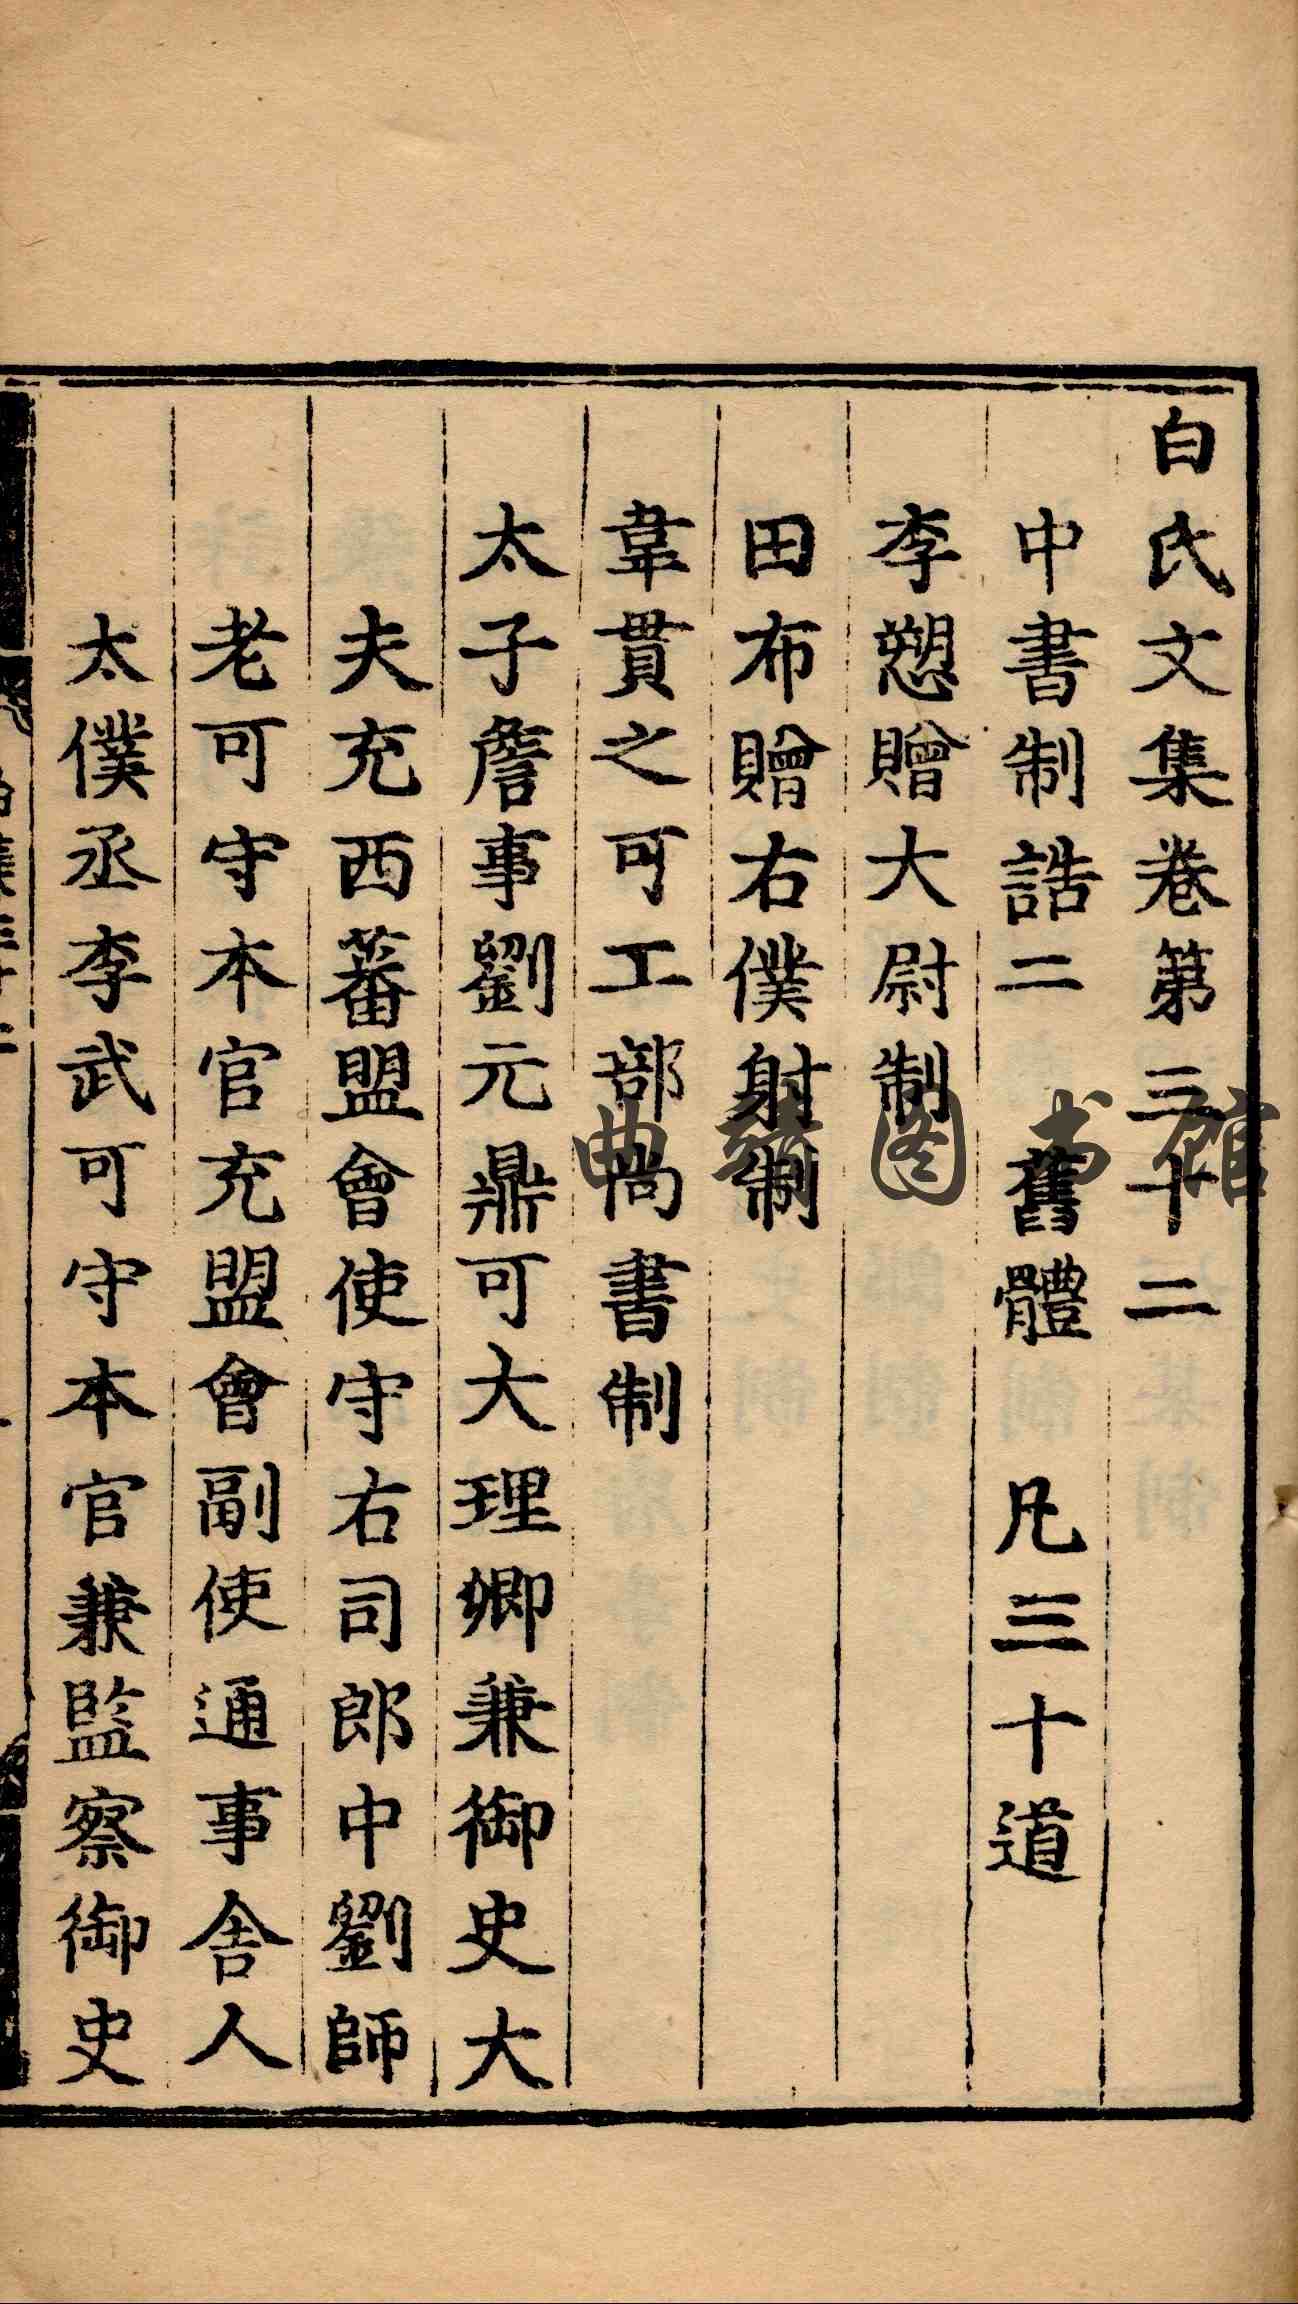 白氏文集卷第三十二
中書制誥二 舊體 凡三十道
李愬贈大尉制
田布贈右僕射制
韋貫之可工部尚書制
太子詹事劉元鼎可大理卿兼御史大
夫充西蕃盟會使守右司郎中劉師
老可守本官充盟會副使通事舍人
太僕丞李武可守本官兼監察御史